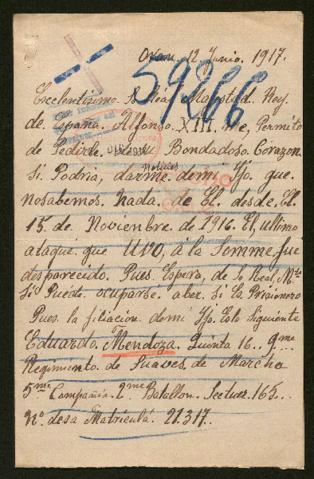 Oran. 12 Junio. 1917.
59866
Excelentisimo. S. Real Magestad. Rey.
de. España. Alfonso. XIII. Me, Permito
de Pedirle. Su Bondadoso. Corazon.
Noticias
Si Podria, darme demi Ijo, que.
nosabemos. Nada, de El. desde, El.
15. de Noviembre. de 1916. El ultimo
ataque que Uvo, á la Somme, fue
desparecido. Pues. Espero, de S. Real, Mte
Si Puede. ocuparse. aber. Si Es Prisionero
Pues la filiacion. demi Ijo. Esto Siguiente
Eduardo. Mendoza. Quinta 16.. 9me
Regimiento de Suaves de Marcha
5me Compañia. 2me Batallon. Secteur. 165..
No. desa Matricula. 21.317..